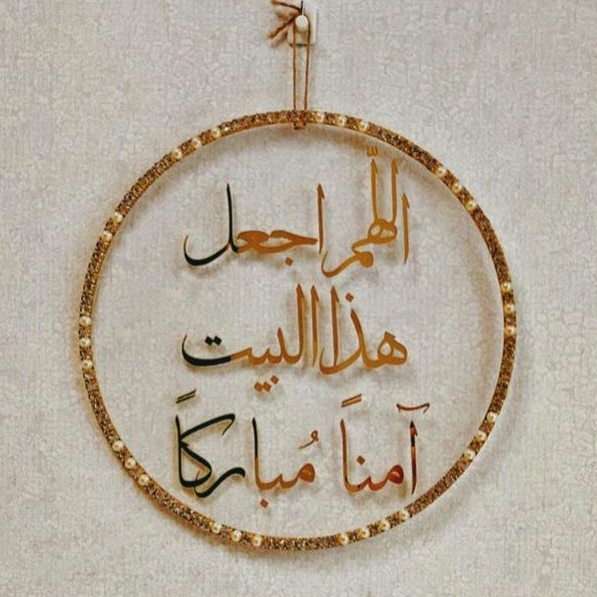 اللّهم اجعل
هذا البيت
آمناً مُباركاً